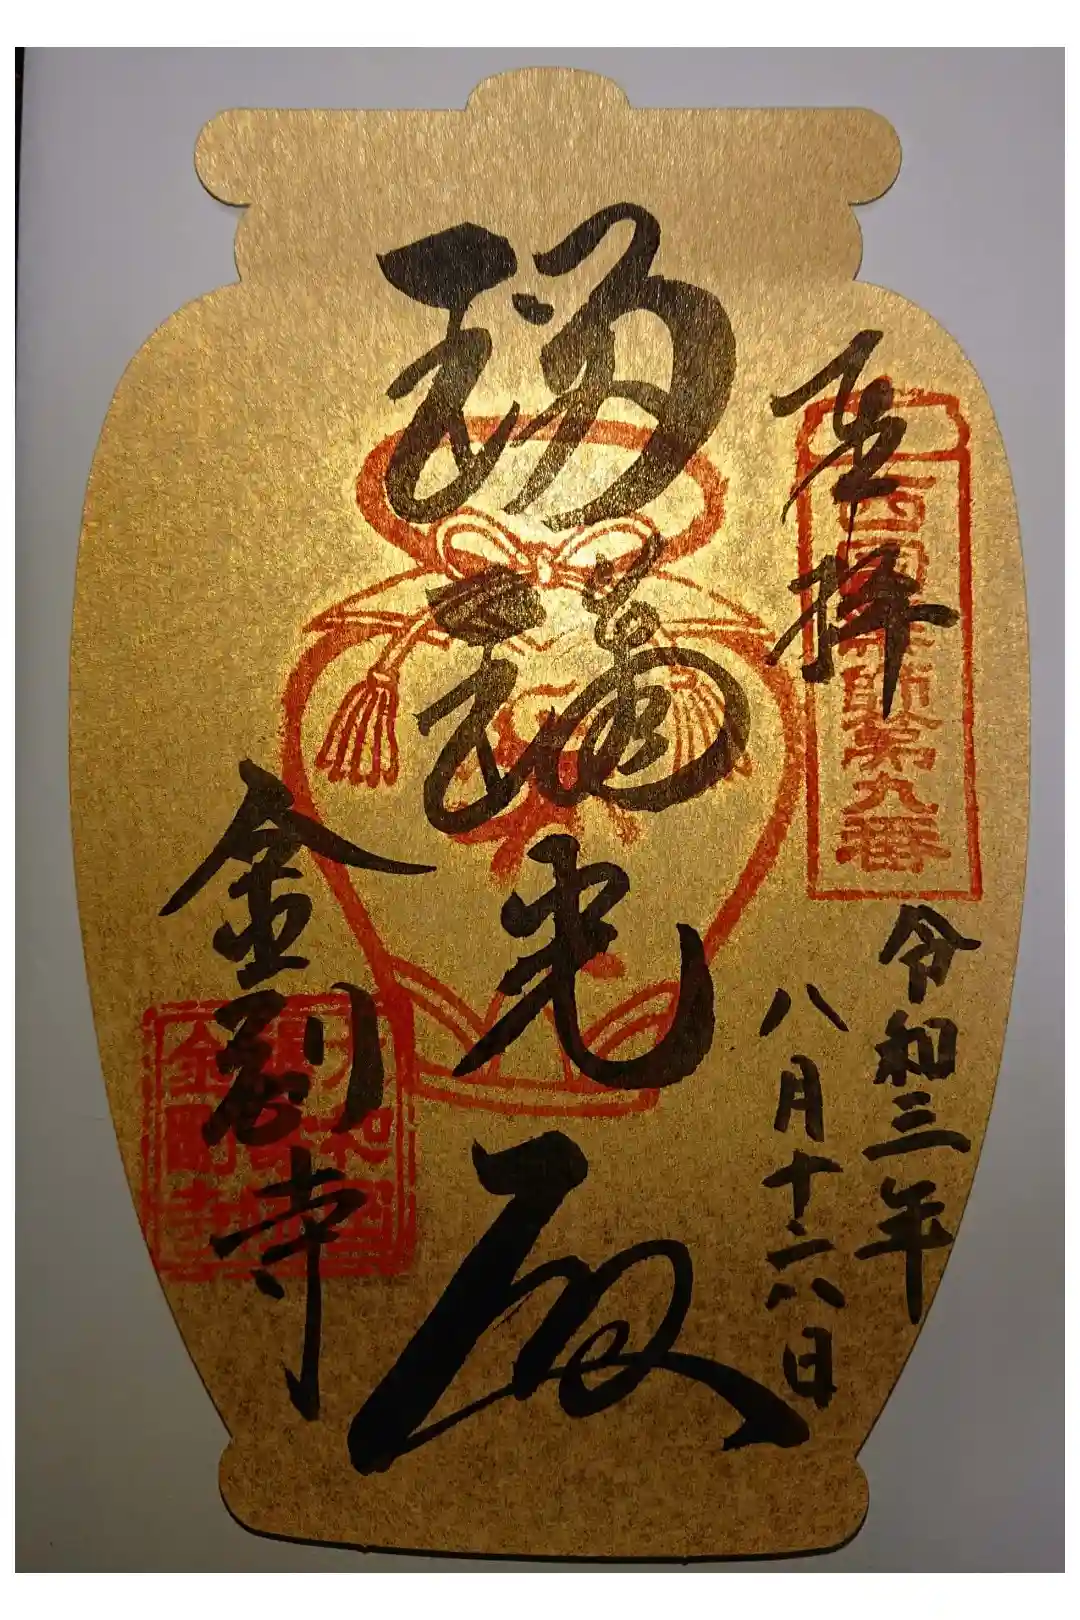 奉拝
西国薬師第九番
令和三年
八月十六日
瑠璃光殿
金剛寺